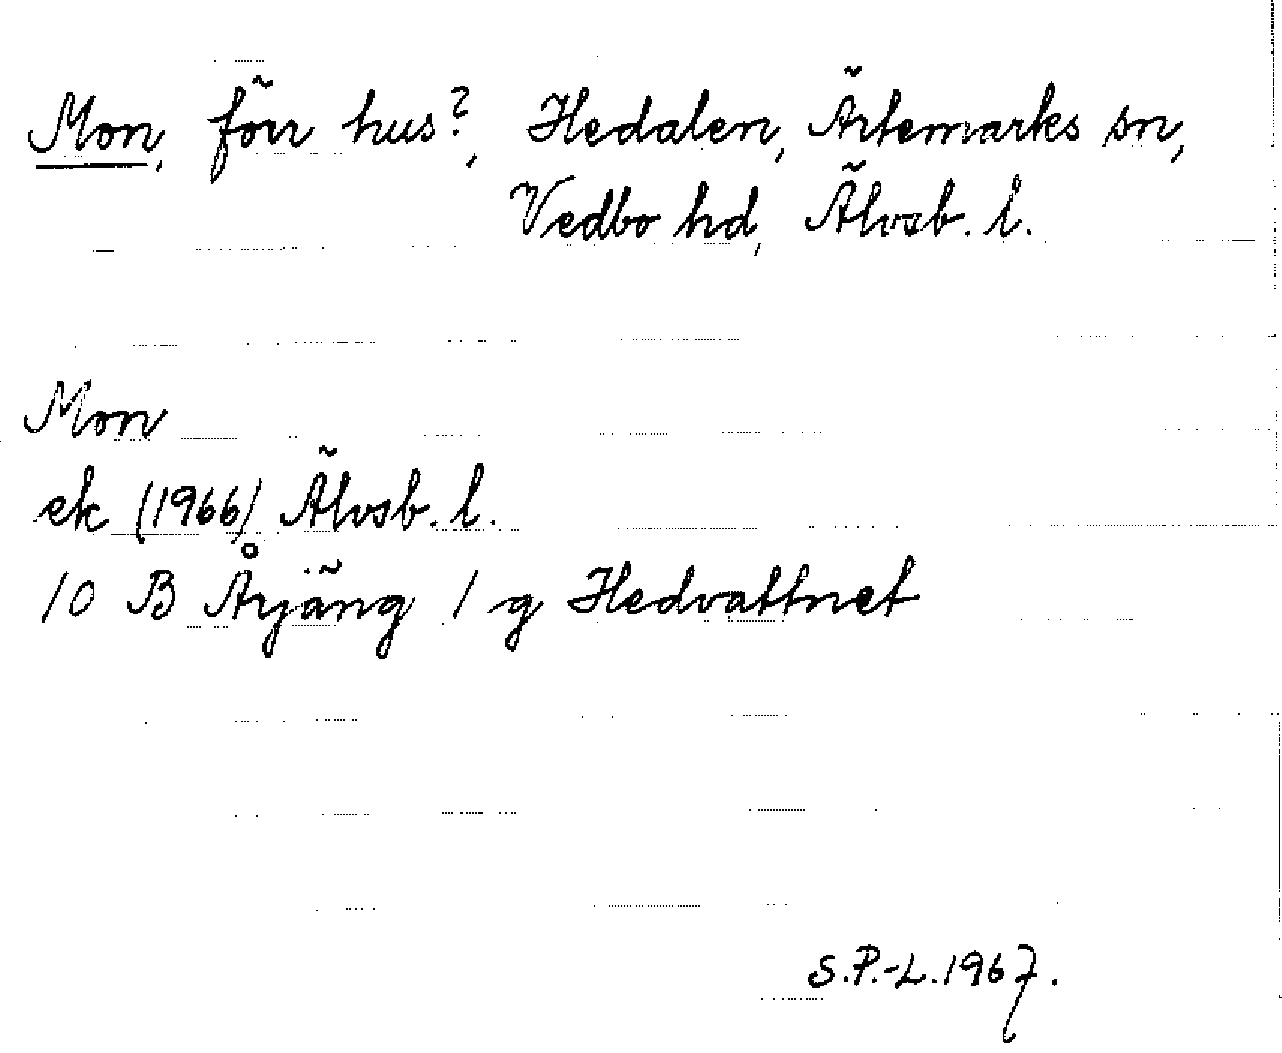 Mon, förr hus?, Hedalen, Ärtemarks sn,
Vedbo hd, Älvsb. l.
Mon
ek (1966) Älvsb. l.
10 B Årjäng 1 g Hedvattnet
S.P.-L. 1967.